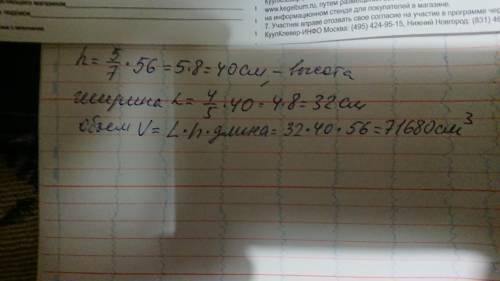 www.kegelbum.ru, путем размещения
на информационном стенде для покупателей в магазине.
7. Участник вправе отозвать свое согласие на участие в программе
КрупКлевер-ИНФО Москва: (495) 424-95-15, Нижний Новгород: (831)
h = 5/7 · 56 = 5·8 = 40 см – высота
ширина L = 4/5 · 40 = 4·8 = 32 см
объем V = L·h·длина = 32·40·56 = 71680 см³